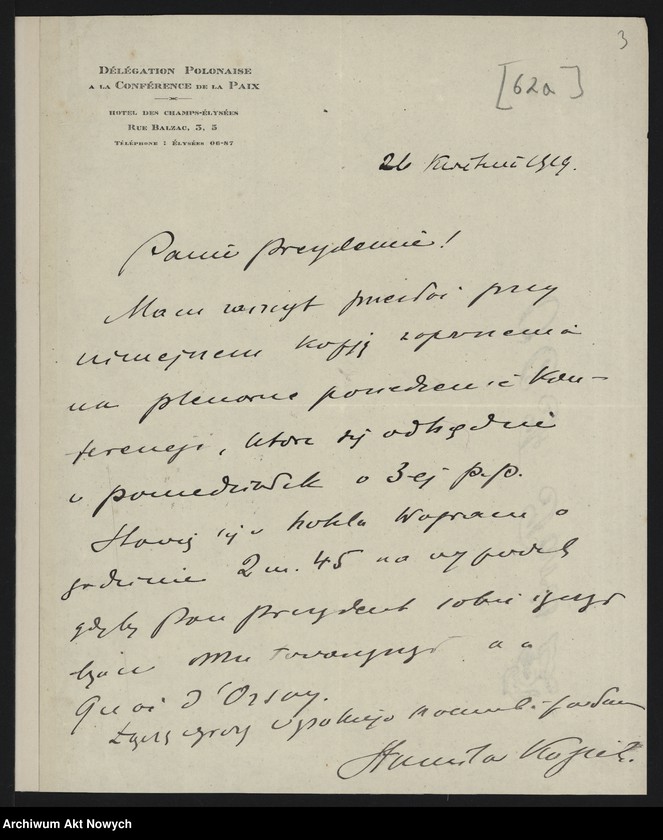 3
[62a]
DÉLÉGATION POLONAISE
A LA CONFÉRENCE DE LA PAIX
HOTEL DES CHAMPS-ÉLYSÉES
RUE BALZAC, 3, 5
TÉLÉPHONE : ÉLYSÉES 06-87
26 Kwietnia 1919.
Panie Prezydencie!
Mam zaszczyt przesłać przy
niniejszem kopję zaproszenia
na plenarne posiedzenie Kon-
ferencji, które się odbędzie
w poniedziałek o 3ej p.p.
Stawię się w hotelu Wagram o
godzinie 2 m. 45 na wypadek
gdyby Pan Prezydent sobie życzył
bym Mu towarzyszył na
Quai d'Orsay.
Łączę wyrazy wysokiego
Stanisław